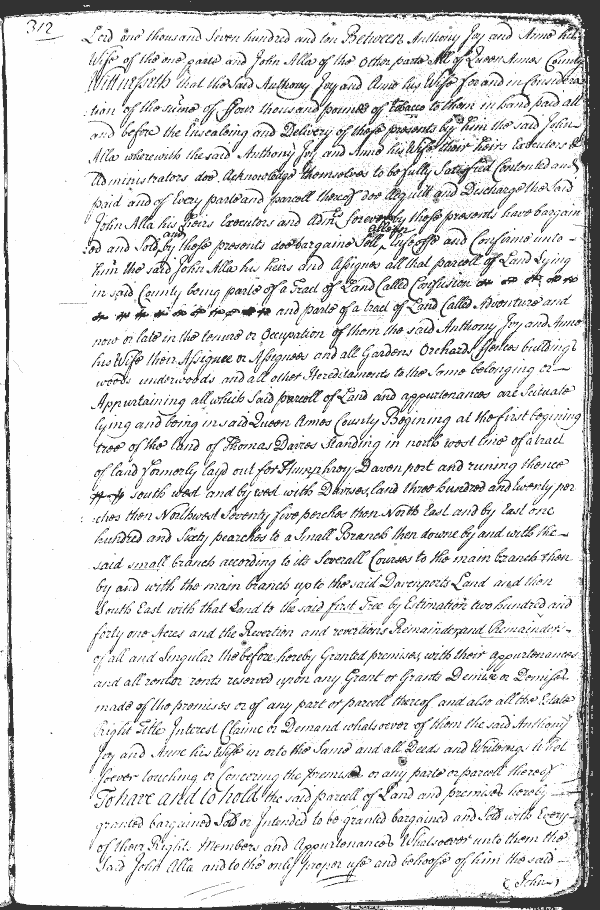 312
Lord one thousand Seven hundred and ten Between Anthony Joy and Anne his
Wife of the one parte and John Alla of the Other parte All of Queen Annes County
Wittnesseth that the Said Anthony Joy and Anne his Wife for and in Considera
tion of the sume of ffour thousand pounds of tobacco to them in hand paid att
and before the Ensealing and Delivery of these presents by him the said John
Alla wherewith the said Anthony Joy and Anne his Wife their heirs Executors &
Administrators doe Acknowledge themselves to be fully Satisfied Contented and
paid and of Every parte and parcell thereof doe Acquitt and Discharge the Said
John Alla his heirs Executors and Admrs forever by these presents have bargain
and alien
ed and Sold by these presents doe bargaine Sell Infeoffe and Confirme unto
him the said John Alla his heirs and Assignes all that parcell of Land Lying
in said County being parte of a Tract of Land Called Confusion
and parte of a tract of Land Called Adventure and
now or late in the tenure or Occupation of them the said Anthony Joy and Anne
his Wife their Assignee or Assignees and all Gardens Orchards ffences buildings
woods underwoods and all other Hereditaments to the Same belonging or
Appurtaining all which Said parcell of Land and appurtenances are Scituate
lying and being in said Queen Annes County Begining at the first begining
tree of the land of Thomas Davies Standing in north west line of a tract
of land formerly laid out for Humphrey Davenport and runing thence
south west and by west with Davises land three hundred and twenty per
ches then Northwest Seventy five perches then North East and by East one
hundred and Sixty pearches to a Small Branch then downe by and with the
said small branch according to its Severall Courses to the main branch then
by and with the main branch up to the said Davenports Land and then
South East with that Land to the said first Tree by Estimation two hundred and
forty one Acres and the Revertion and revertions Remainder and Remainders
of all and Singular the before hereby Granted premises with their appurtenances
and all rent or rents reserved upon any Grant or Grants Demise or Demises
made of the premises or of any part or parcell thereof and also all the Estate
Right Title Interest Claime or Demand whatsoever of them the said Anthony
Joy and Anne his Wife in or to the Same and all Deeds and Writeings What
soever touching or Concerning the premises or any parte or parcell thereof
To have and to hold the said parcell of Land and premises hereby
granted bargained Sold or Intended to be granted bargained and Sold with Every
of their Rights Members and Appurtenances Whatsoever unto them the
Said John Alla and to the only proper use and behoofe of him the said
John